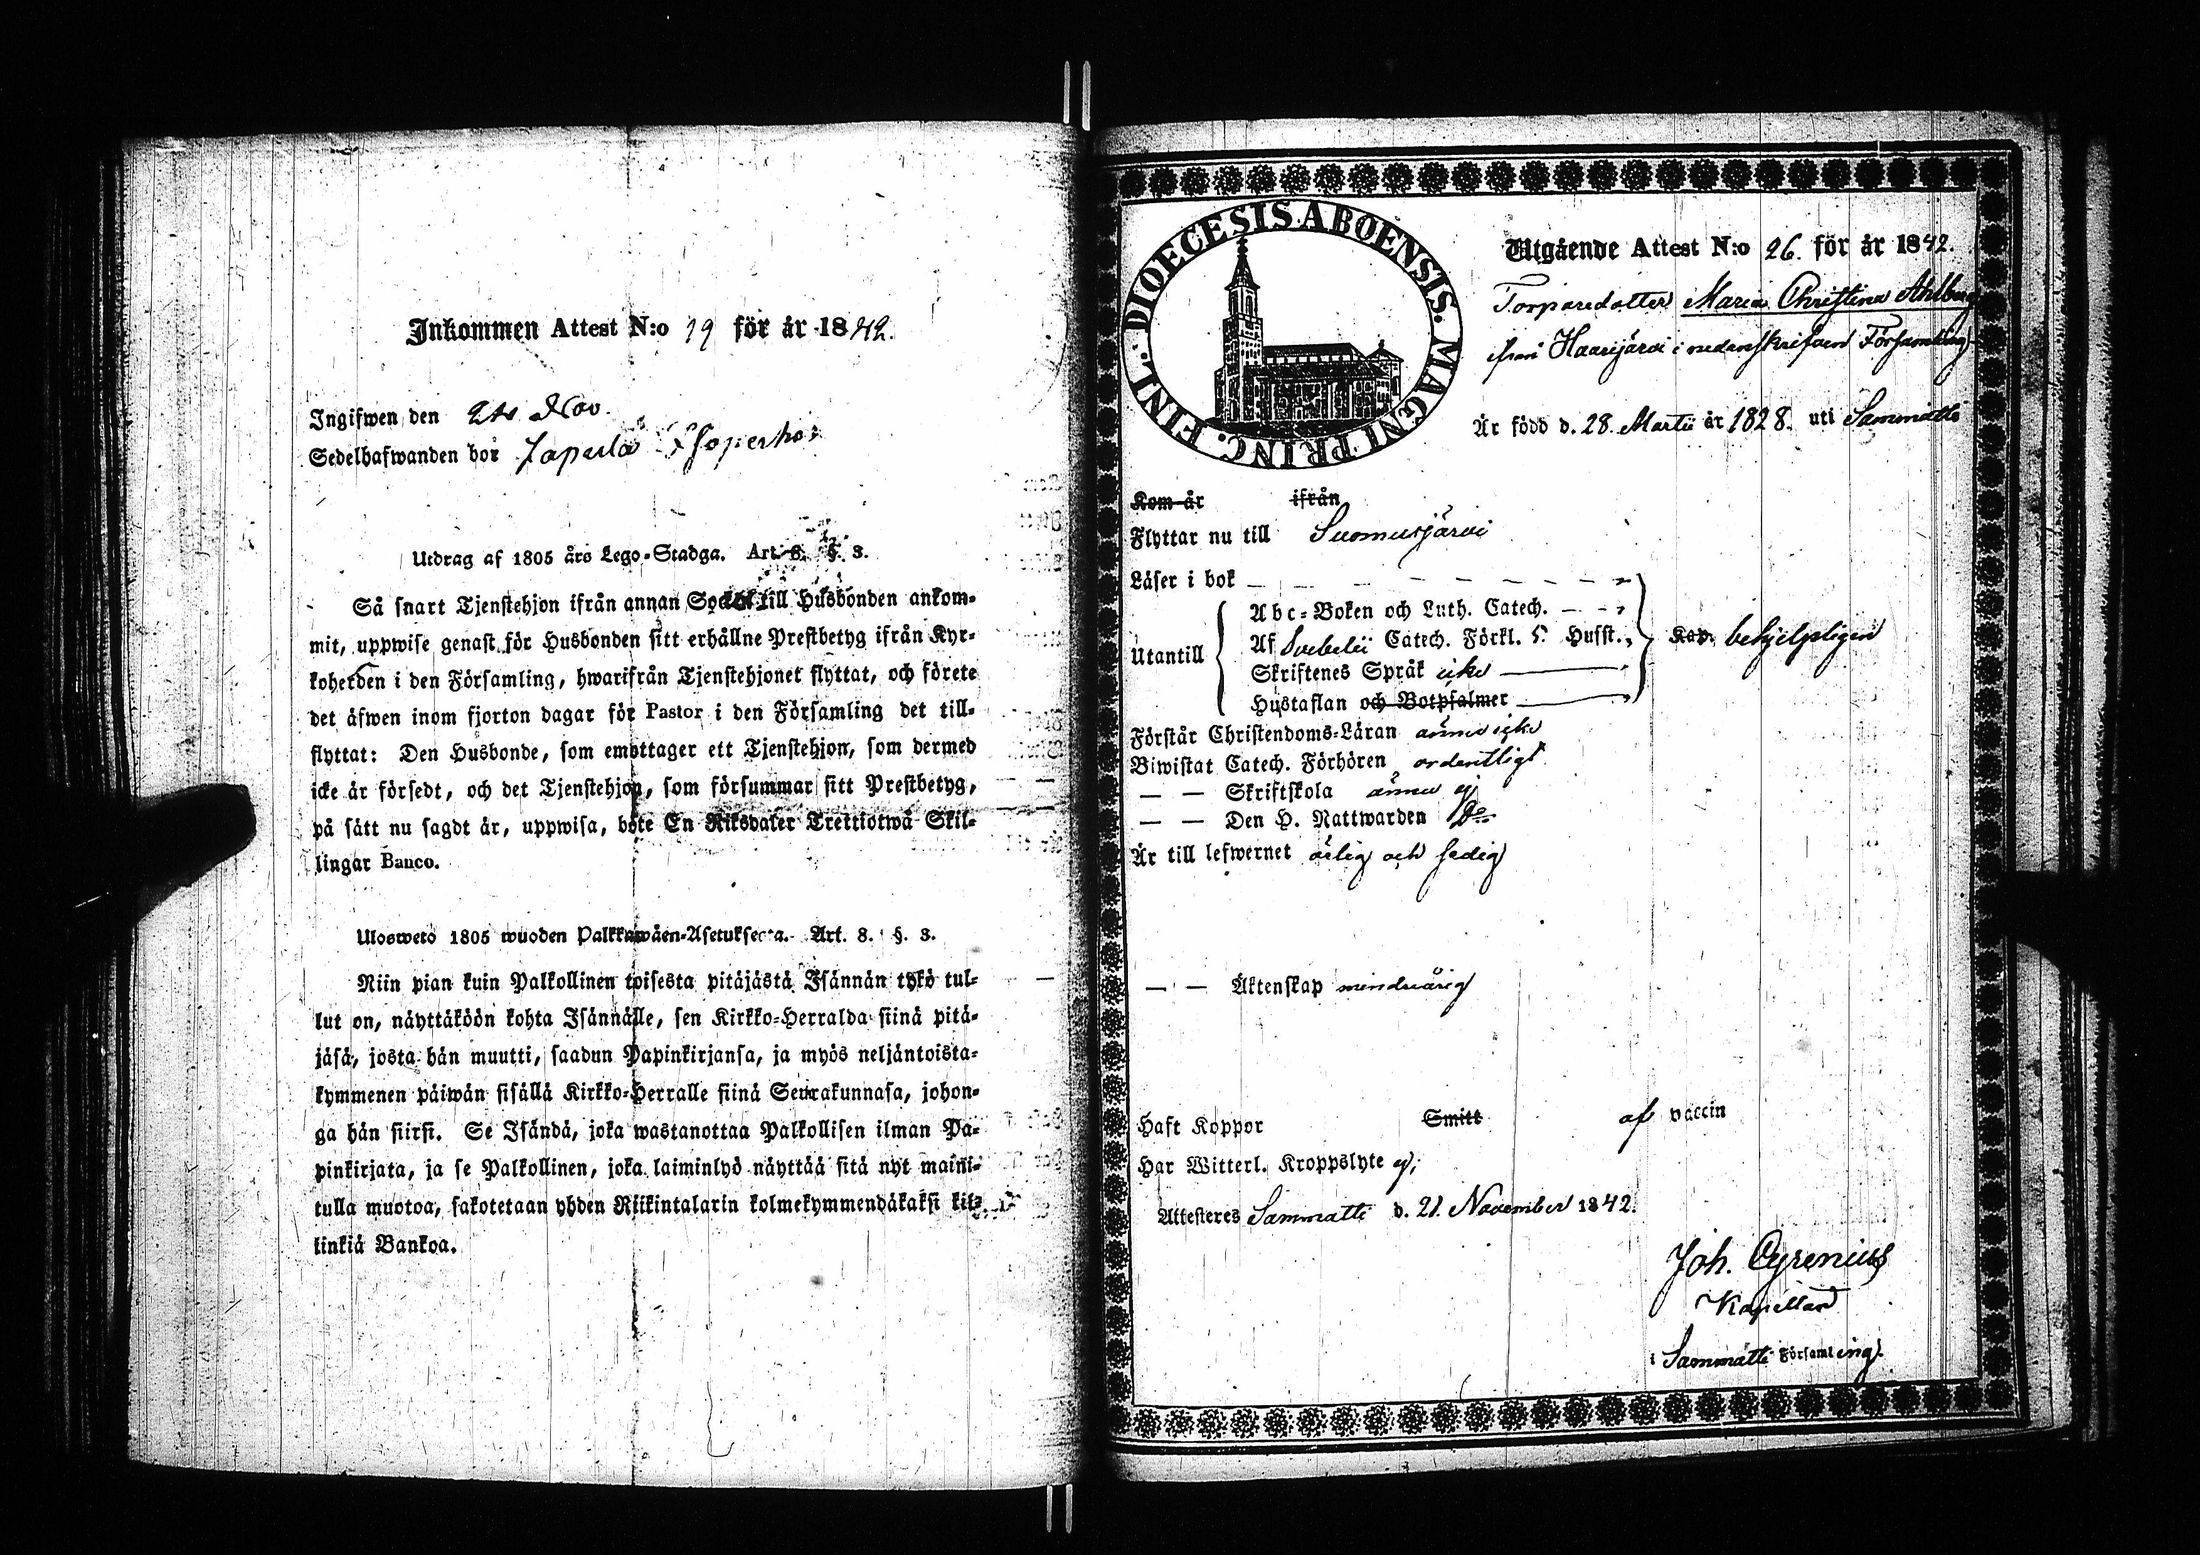 Inkommen Attest N:o 19 för år 1842.
Ingifwen den Nov.
Sedelhafwanden bor
Utdrag af 1805 års Lego-Stadga. Art. 8. §. 3.
Så snart Tjenstehjon ifrån annan Socken till Husbonden ankom-
mit, uppwise genast för Husbonden sitt erhållne Prestbetyg ifrån Kyr-
koherden i den Församling, hwarifrån Tjenstehjonet flyttat, och förete
det äfwen inom fjorton dagar för Pastor i den Församling det till-
flyttat: Den Husbonde, som emottager ett Tjenstehjon, som dermed
icke är försedt, och det Tjenstehjon, som försummar sitt Prestbetyg,
på sätt nu sagdt är, uppwisa, böte En Riksdaler Trettiotwå Skil-
lingar Banco.
Ulosweto 1805 wuoden Palkkawäen-Asetuksesta. Art. 8. §. 3.
Niin pian kuin Palkollinen toisesta pitäjästä Isännän tykö tul-
lut on, näyttäköön kohta Isännälle, sen Kirkko-Herralda siinä pitä-
jäsä, josta hän muutti, saadun Papinkirjansa, ja myös neljäntoista-
kymmenen päiwän sisällä Kirkko-Herralle siinä Seurakunnasa, johon-
ga hän siirsi. Se Isändä, joka wastanottaa Palkollisen ilman Pa-
pinkirjata, ja se Palkollinen, joka laiminlyö näyttää sitä nyt maini-
tulla muotoa, sakotetaan yhden Riikintalarin kolmekymmendäkaksi kil-
linkiä Bankoa.
DIOECESIS ABOENSIS. MAGNI PRINC. FINL.
Utgående Attest N:o 26. för år 1842.
Torparedotter Maria Christina Ahlberg
från Haarijärvi i nedanskrifven Församling
Är född d. 28. Martii år 1828. uti Sammatti
Kom år ifrån
Flyttar nu till Suomusjärvi
Läser i bok
Utantill
Abc-Boken och Luth. Catech.
Af Svebelii Catech. Förkl. 5. Husst.
Skriftenes Språk icke
Hustaflan och Botpsalmer
Kap. behjelpligen
Förstår Christendoms-Läran ännu icke
Biwistat Catech. Förhören ordentligt
— — Skriftskola ännu ej
— — Den H. Nattwarden Do
Är till lefwernet ärlig och sedig
— — Äktenskap minderårig
Haft Koppor Smitt af vaccin
Har Witterl. Kroppslyte ej,
Attesteres Sammatti d. 21. November 1842.
Joh. Cyrenius
Kapellan
i Sammatti Församling.